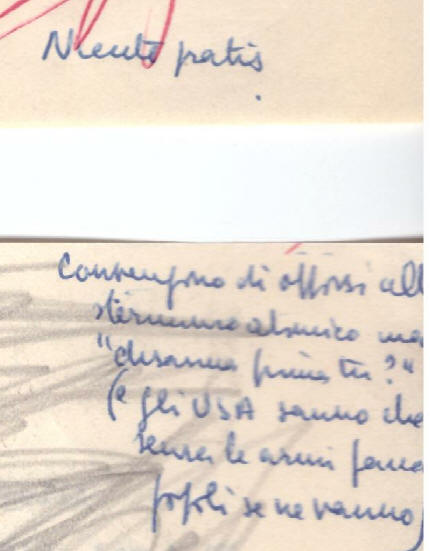 Niente gratis
Convengono di opporsi all
sterminio atomico ma
"disarma prima tu?"
(e gli USA sanno che
senza le armi
popoli se ne vanno)